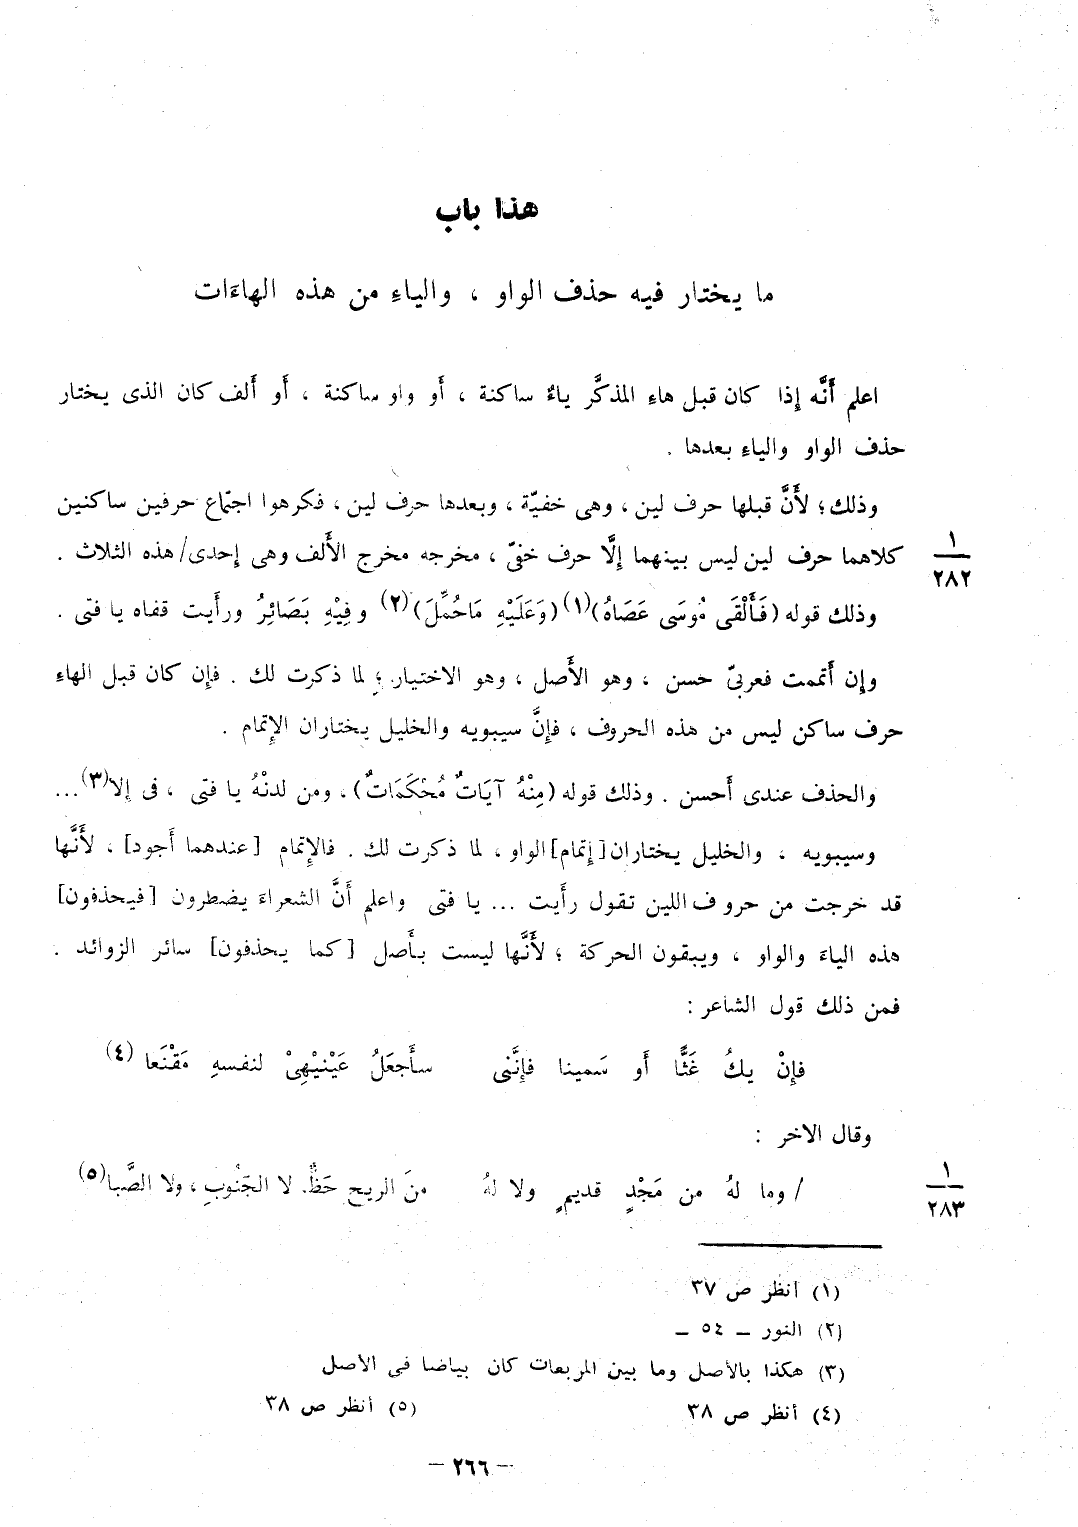 هذا باب
ما يختار فيه حذف الواو ، والياءِ من هذه الهاءَات
اعلم أَنَّه إِذا كان قبل هاءِ المذكَّر ياءٌ ساكنة ، أَو واو ساكنة ، أَو أَلف كان الذى يختار
حذف الواو والياءِ بعدها .
وذلك؛ لأَنَّ قبلها حرف لين ، وهى خفيّة ، وبعدها حرف لين ، فكرهوا اجتماع حرفين ساكنين
كلاهما حرف لين ليس بينهما إِلَّا حرف خفىّ ، مخرجه مخرج الأَلف وهى إِحدى/هذه الثلاث .
١
٢٨٢
وذلك قوله (فَأَلْقَى مُوسَى عَصَاهُ)(١) (وَعَلَيْهِ مَاحُمِّلَ)(٢) وفِيْهِ بَصَائِرُ ورأَيت قفاه يا فتى .
وإِن أَتممت فعربىّ حسن ، وهو الأَصل ، وهو الاختيار؛ لما ذكرت لك . فإِن كان قبل الهاءِ
حرف ساكن ليس من هذه الحروف ، فإِنَّ سيبويه والخليل يختاران الإِتمام .
والحذف عندى أَحسن . وذلك قوله (مِنْهُ آيَاتٌ مُحْكَمَاتٌ) ، ومن لدنْهُ يا فتى ، فى إِلا(٣) ...
وسيبويه ، والخليل يختاران [إِتمام] الواو ، لما ذكرت لك . فالإِتمام [عندهما أَجود] ، لأَنَّها
قد خرجت من حروف اللين تقول رأَيت ... يا فتى واعلم أَنَّ الشعراءَ يضطرون [فيحذفون]
هذه الياءَ والواو ، ويبقون الحركة ؛ لأَنَّها ليست بأَصل [كما يحذفون] سائر الزوائد .
فمن ذلك قول الشاعر :
فإِنْ يكُ غَثًّا أَو سَمينا فإِنَّنى سأَجعَلُ عَيْنيْهِىْ لنفسهِ مَقْنَعا (٤)
وقال الاخر :
/ وما لهُ من مَجْدٍ قديمٍ ولا لهُ منَ الريح حَظٌّ. لا الجَنُوبِ ، ولا الصَّبا(٥)
١
٢٨٣
(١) انظر ص ٣٧
(٢) النور – ٥٤ –
(٣) هكذا بالأصل وما بين المربعات كان بياضا فى الأصل
(٤) أنظر ص ٣٨ (٥) أنظر ص ٣٨
– ٢٦٦ –